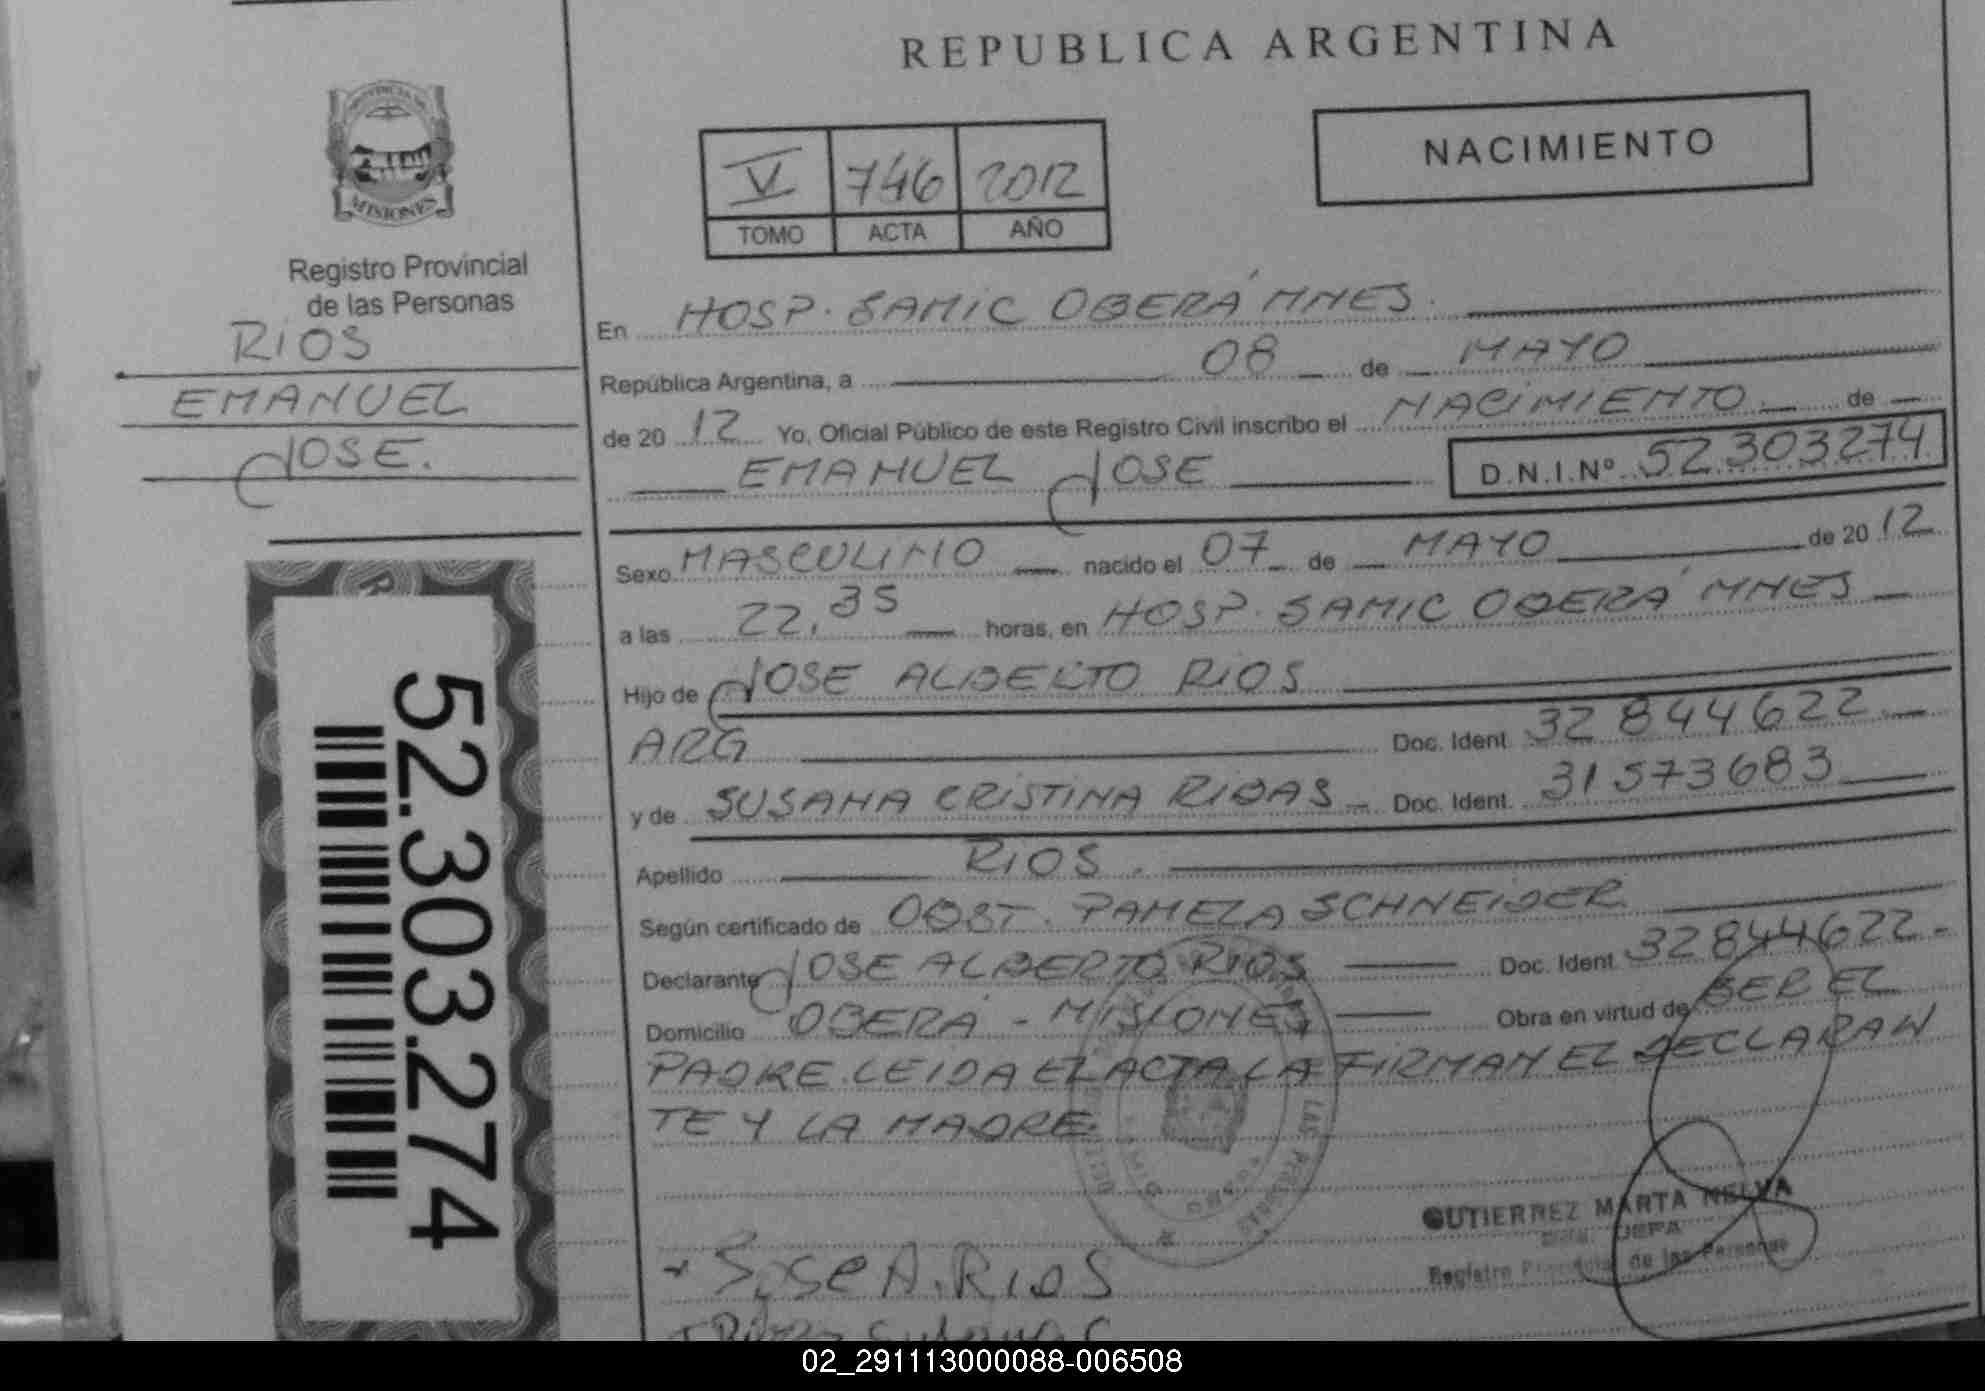 REPUBLICA ARGENTINA
NACIMIENTO
V 746 2012
TOMO ACTA AÑO
PROVINCIA DE
MISIONES
Registro Provincial
de las Personas
RIOS
EMANUEL
JOSE.
52.303.274
En HOSP. SAMIC OBERÁ MNES.
República Argentina, a 08 de MAYO
de 20 12 Yo, Oficial Público de este Registro Civil inscribo el NACIMIENTO de
EMANUEL JOSE D.N.I.Nº 52.303274
Sexo MASCULINO nacido el 07 de MAYO de 20 12
a las 22,35 horas, en HOSP. SAMIC OBERÁ MNES
Hijo de JOSE ALBERTO RIOS
ARG Doc. Ident. 32 844622
y de SUSANA CRISTINA RIBAS Doc. Ident. 31 573683
Apellido RIOS.
Según certificado de OBST. PAMELA SCHNEIDER
Declarante JOSE ALBERTO RIOS Doc. Ident. 32844622.-
Domicilio OBERÁ - MISIONES Obra en virtud de SER EL
PADRE. LEIDA EL ACTA LA FIRMAN EL DECLARAN
TE Y LA MADRE.
LAS PERSONAS
GUTIERREZ MARTA NELVA
JEFA
Registro Provincial de las Personas
Jose A. RIOS
02_291113000088-006508